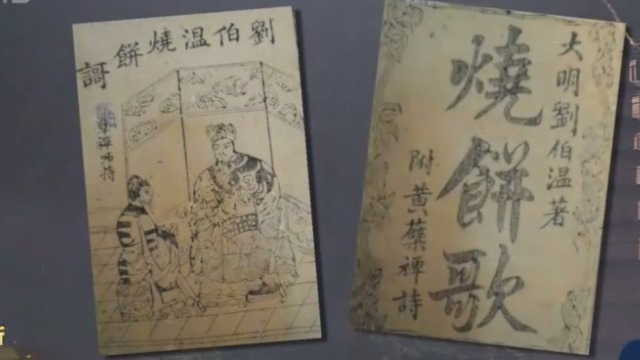 劉伯溫燒餅謌
禪師
大明劉伯溫著
燒餅歌
附黃蘗禪詩